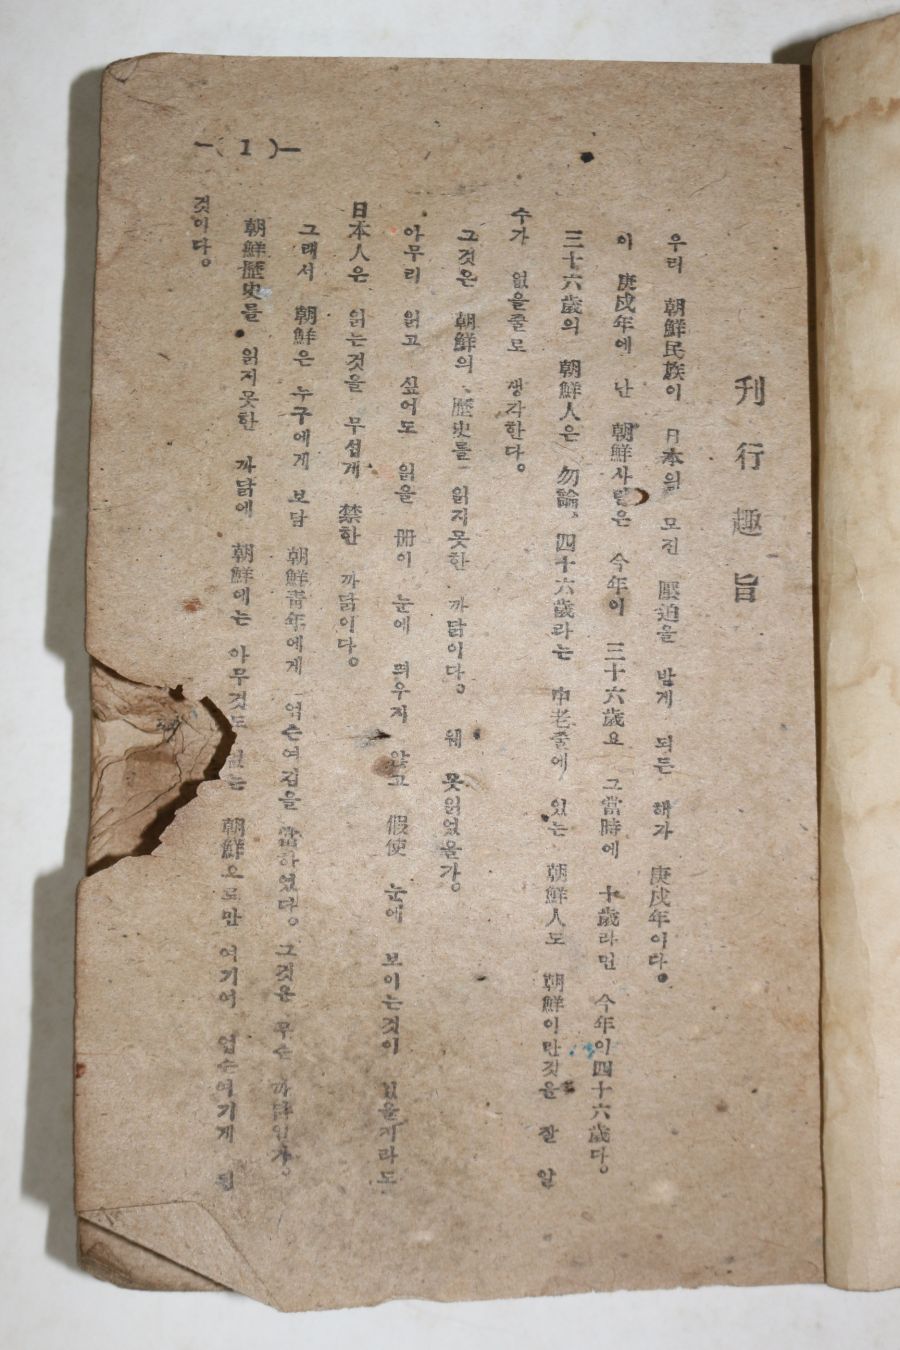 刊行趣旨
우리 朝鮮民族이 日本의 모진 壓迫을 받게 되든 해가 庚戌年이다。
이 庚戌年에 난 朝鮮사람은 今年이 三十六歲요 그當時에 十歲라면 今年이四十六歲다。
三十六歲의 朝鮮人은 勿論、四十六歲라는 中老줄에 있는 朝鮮人도 朝鮮이란것을 잘 알
수가 없을줄로 생각한다。
그것은 朝鮮의 歷史를 읽지못한 까닭이다。 웨 못읽었을가。
아무리 읽고 싶어도 읽을 冊이 눈에 띄우지 않고 假使 눈에 보이는것이 있을지라도
日本人은 읽는것을 무섭게 禁한 까닭이다。
그래서 朝鮮은 누구에게 보담 朝鮮靑年에게 업슨여김을 當하였다。그것은 무슨 까닭인가。
朝鮮歷史를 읽지못한 까닭에 朝鮮에는 아무것도 없는 朝鮮으로만 여기어 업슨여기게 된
것이다。
—( 1 )—